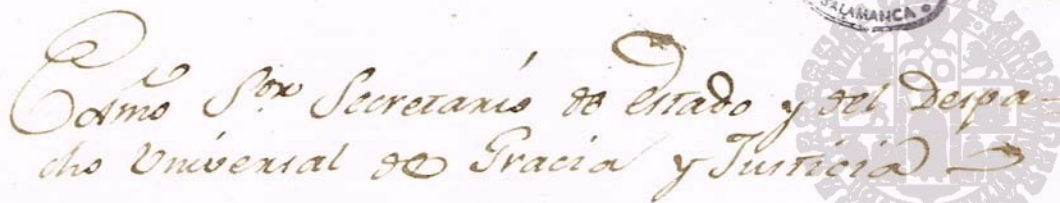 SALAMANCA
Exmo Sor Secretario de Estado y del Despa-
cho Universal de Gracia y Justicia